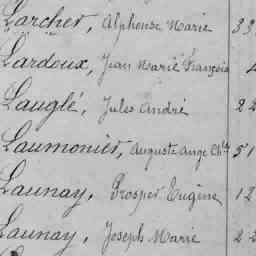 Larcher, Alphonse Marie 33
Lardoux, Jean Marie François 4
Lauglé, Jules André 22
Laumonier, Auguste Ange Ch. 51
Launay, Prosper Eugène 12
Launay, Joseph Marie 22